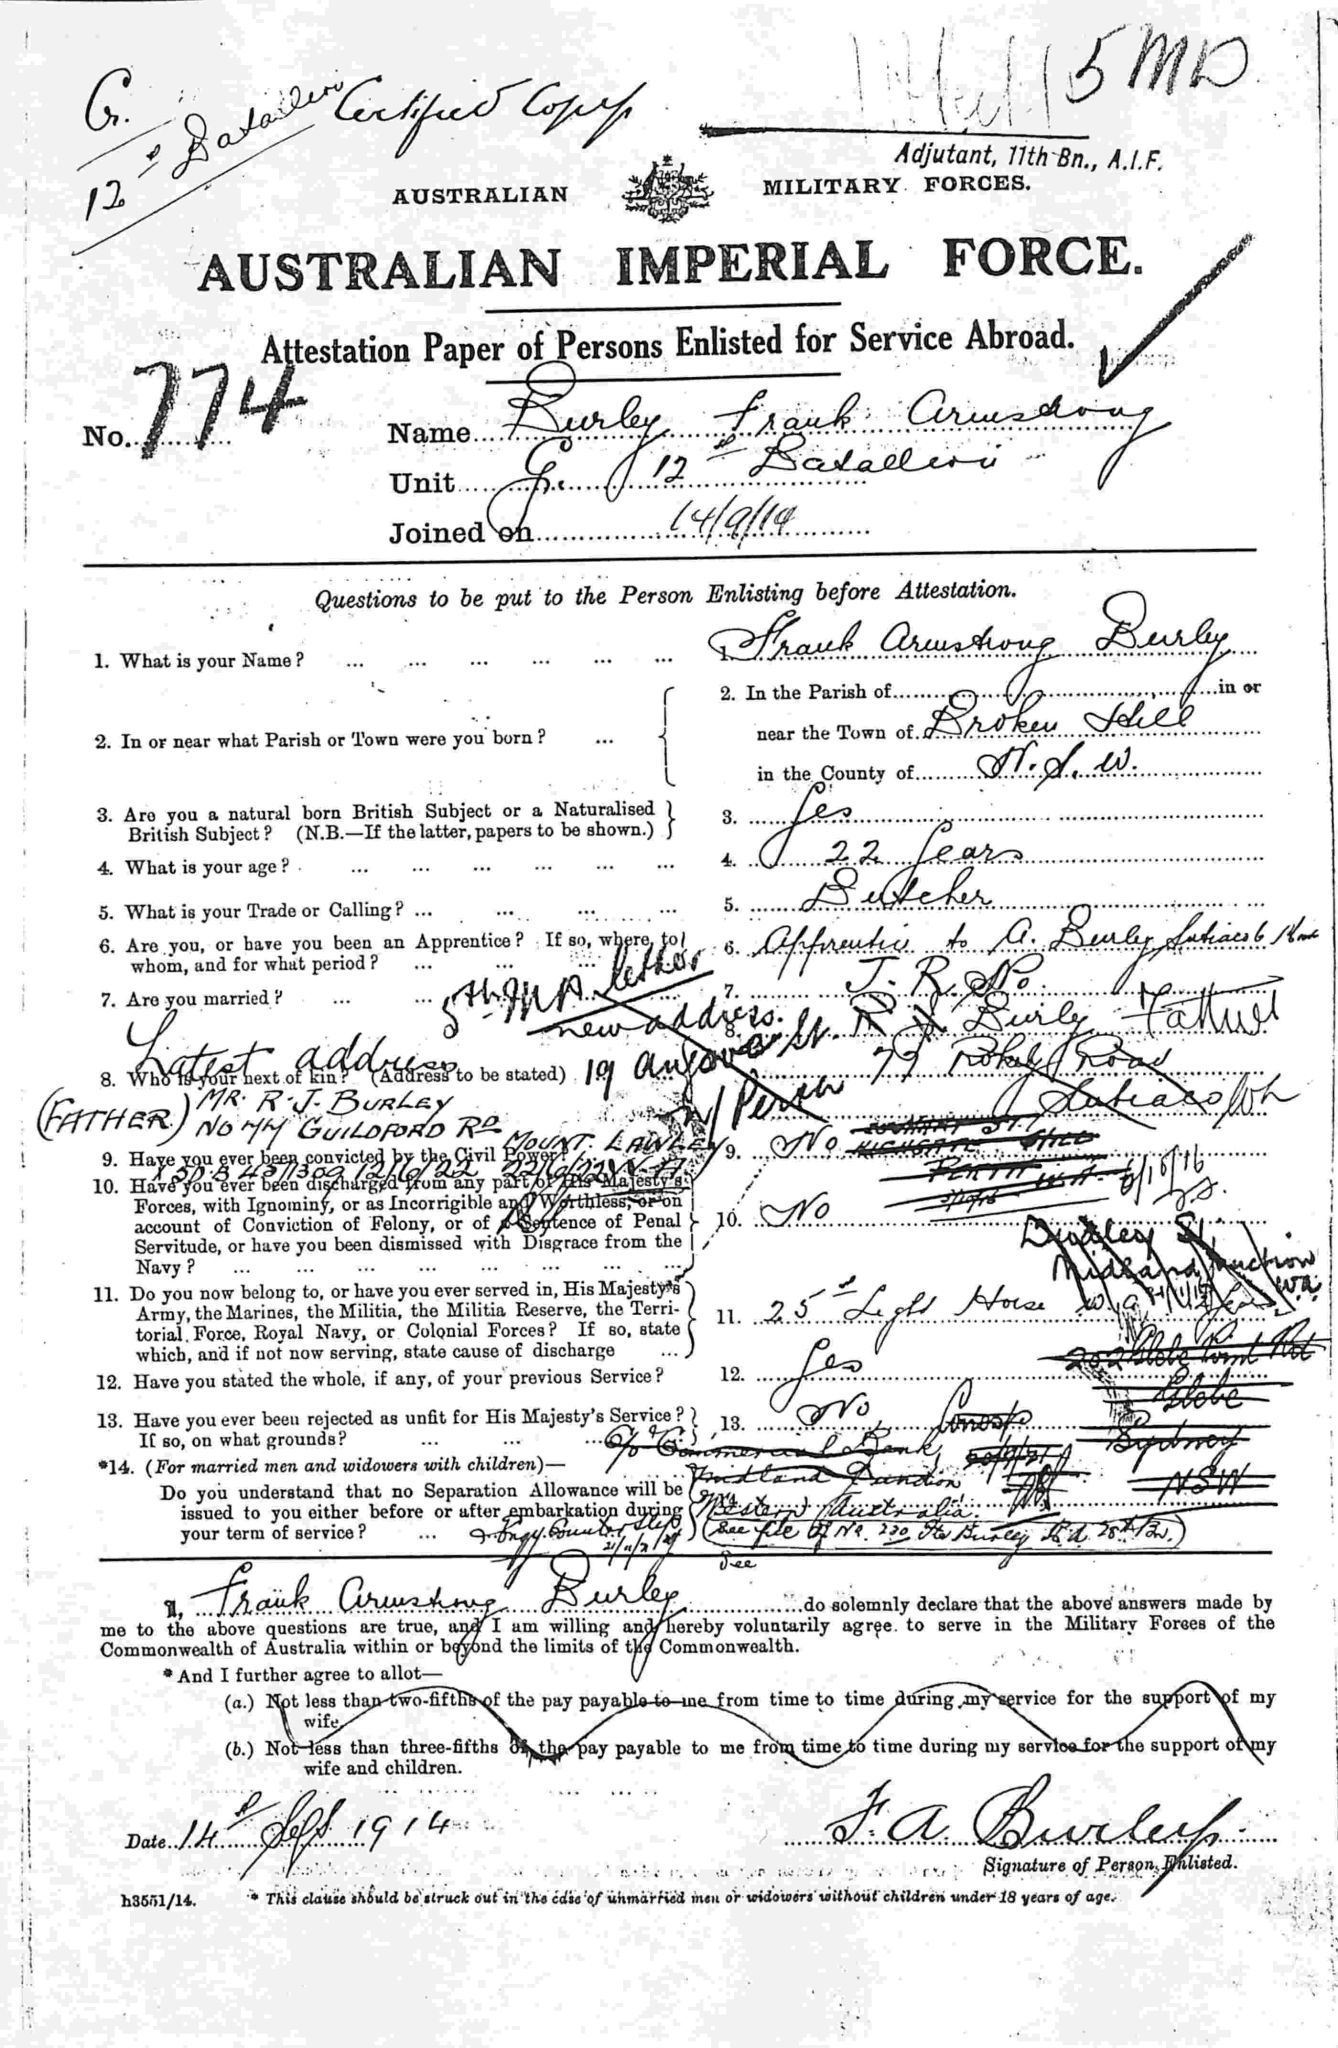 5 MD
G.
12th Batallion
Certified Copy
Adjutant, 11th Bn., A.I.F.
AUSTRALIAN MILITARY FORCES.
AUSTRALIAN IMPERIAL FORCE.
Attestation Paper of Persons Enlisted for Service Abroad.
No. 774
Name Burley Frank Armstrong
Unit G. 12th Batallion
Joined on 14/9/14
Questions to be put to the Person Enlisting before Attestation.
1. What is your Name? ... 1. Frank Armstrong Burley
2. In or near what Parish or Town were you born? ... 2. In the Parish of in or
near the Town of Broken Hill
in the County of N.S.W.
3. Are you a natural born British Subject or a Naturalised
British Subject? (N.B.—If the latter, papers to be shown.) 3. Yes
4. What is your age? ... 4. 22 Years
5. What is your Trade or Calling? ... 5. Butcher
6. Are you, or have you been an Apprentice? If so, where, to
whom, and for what period? ... 6. Apprentice to A. Burley Subiaco 6
7. Are you married? ... 7. No.
5th MD letter
new address.
19 Angove St.
Perth
8. Who is your next of kin? (Address to be stated) 8. R J Burley Father
Rokeby Road
Subiaco WA
Latest address
(FATHER) MR. R. J. BURLEY
No 44 GUILDFORD RD MOUNT LAWLEY
12/6/22 22/6/22 W.A.
HIGHGATE HILL
PERTH W.A.
6/10/16
9. Have you ever been convicted by the Civil Power? 9. No
10. Have you ever been discharged from any part of His Majesty's
Forces, with Ignominy, or as Incorrigible and Worthless, or on
account of Conviction of Felony, or of a Sentence of Penal
Servitude, or have you been dismissed with Disgrace from the
Navy? ... 10. No
Midland Junction
W.A.
11. Do you now belong to, or have you ever served in, His Majesty's
Army, the Marines, the Militia, the Militia Reserve, the Terri-
torial Force, Royal Navy, or Colonial Forces? If so, state
which, and if not now serving, state cause of discharge ... 11. 25th Light Horse W.A.
12. Have you stated the whole, if any, of your previous Service? 12. Yes
202 Glebe Point Rd
Glebe
Sydney
NSW
13. Have you ever been rejected as unfit for His Majesty's Service?
If so, on what grounds? ... 13. No
C/o Commercial Bank
Midland Junction
Western Australia
*14. (For married men and widowers with children)—
Do you understand that no Separation Allowance will be
issued to you either before or after embarkation during
your term of service? ...
(See file of No. 230 Burley 28th Bn.)
I, Frank Armstrong Burley do solemnly declare that the above answers made by
me to the above questions are true, and I am willing and hereby voluntarily agree to serve in the Military Forces of the
Commonwealth of Australia within or beyond the limits of the Commonwealth.
* And I further agree to allot—
(a.) Not less than two-fifths of the pay payable to me from time to time during my service for the support of my
wife.
(b.) Not less than three-fifths of the pay payable to me from time to time during my service for the support of my
wife and children.
Date 14th Sept 1914
F. A. Burley
Signature of Person Enlisted.
h3551/14. * This clause should be struck out in the case of unmarried men or widowers without children under 18 years of age.